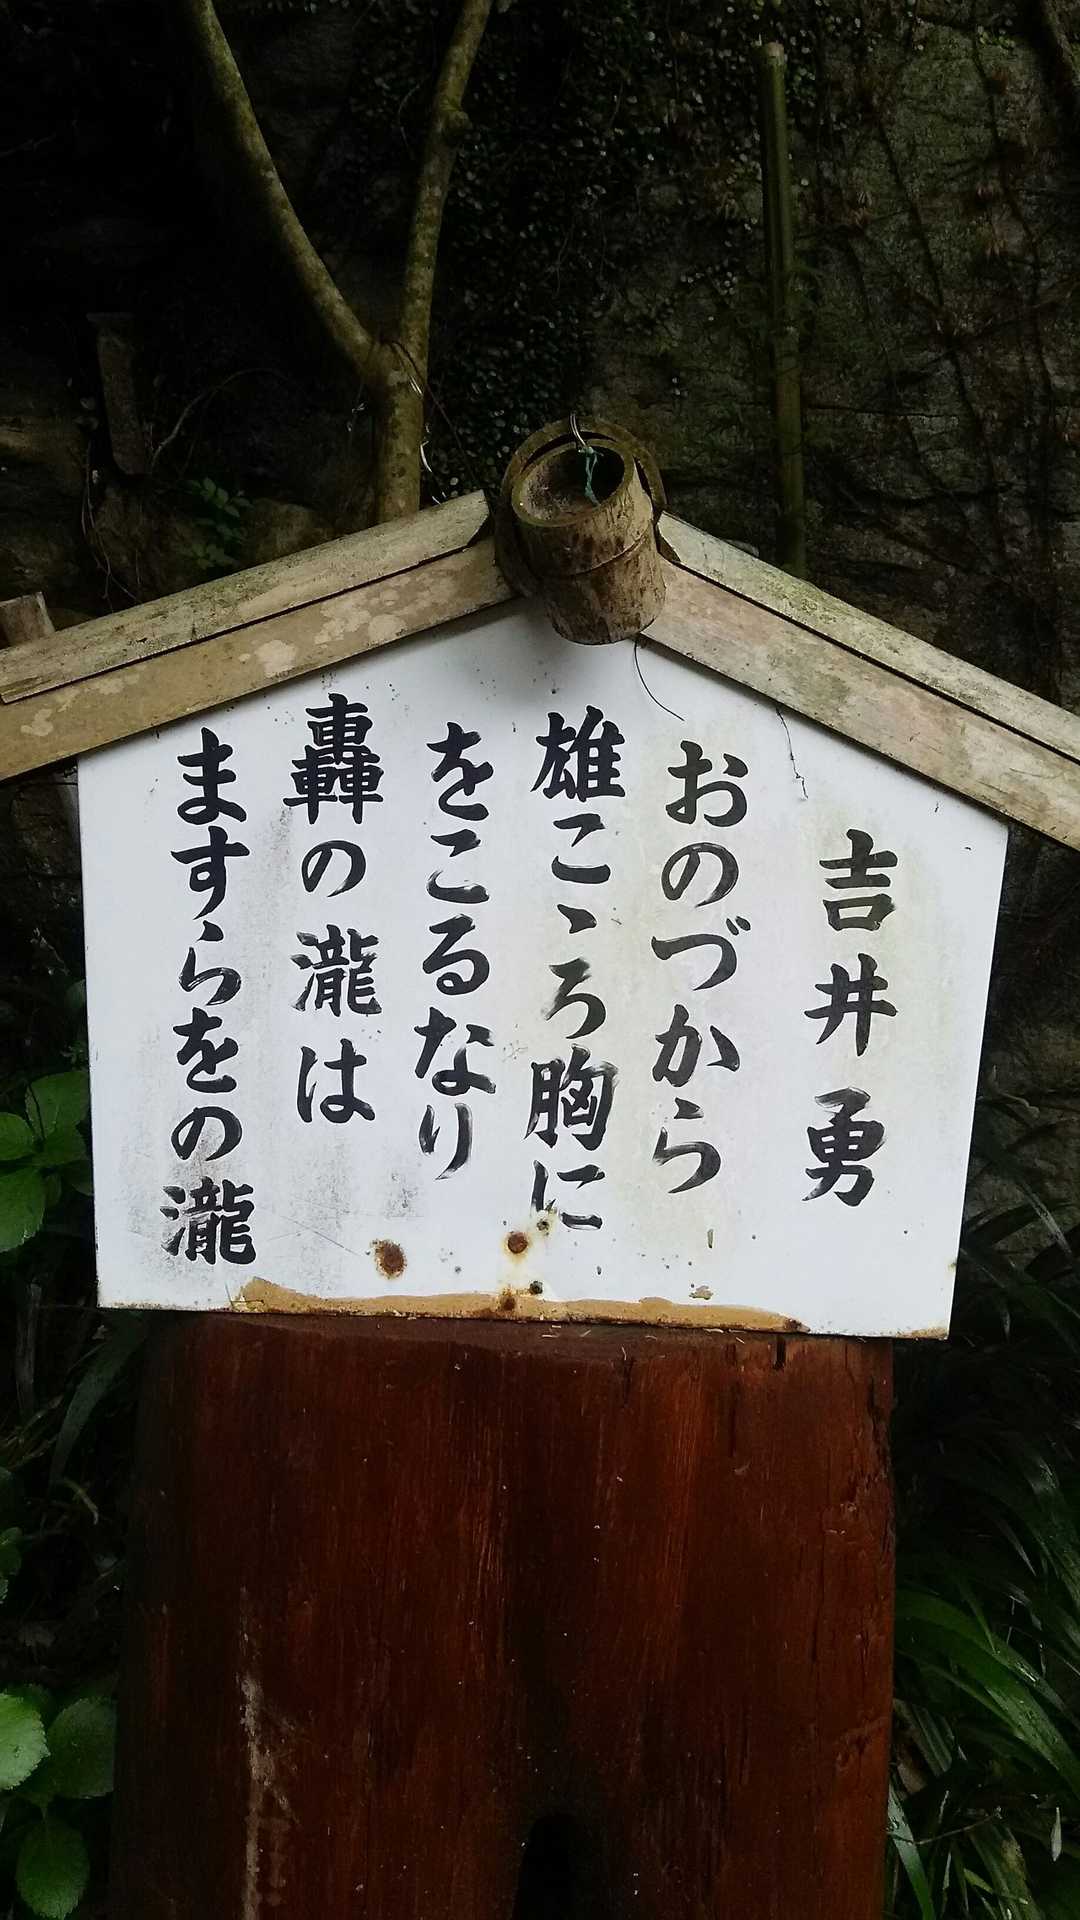 吉井勇
おのづから
雄こゝろ胸に
をこるなり
轟の瀧は
ますらをの瀧